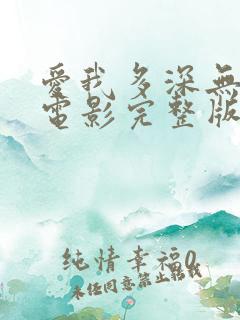 愛我多深無
電影完整版
純情幸福0
未经同意禁止転载